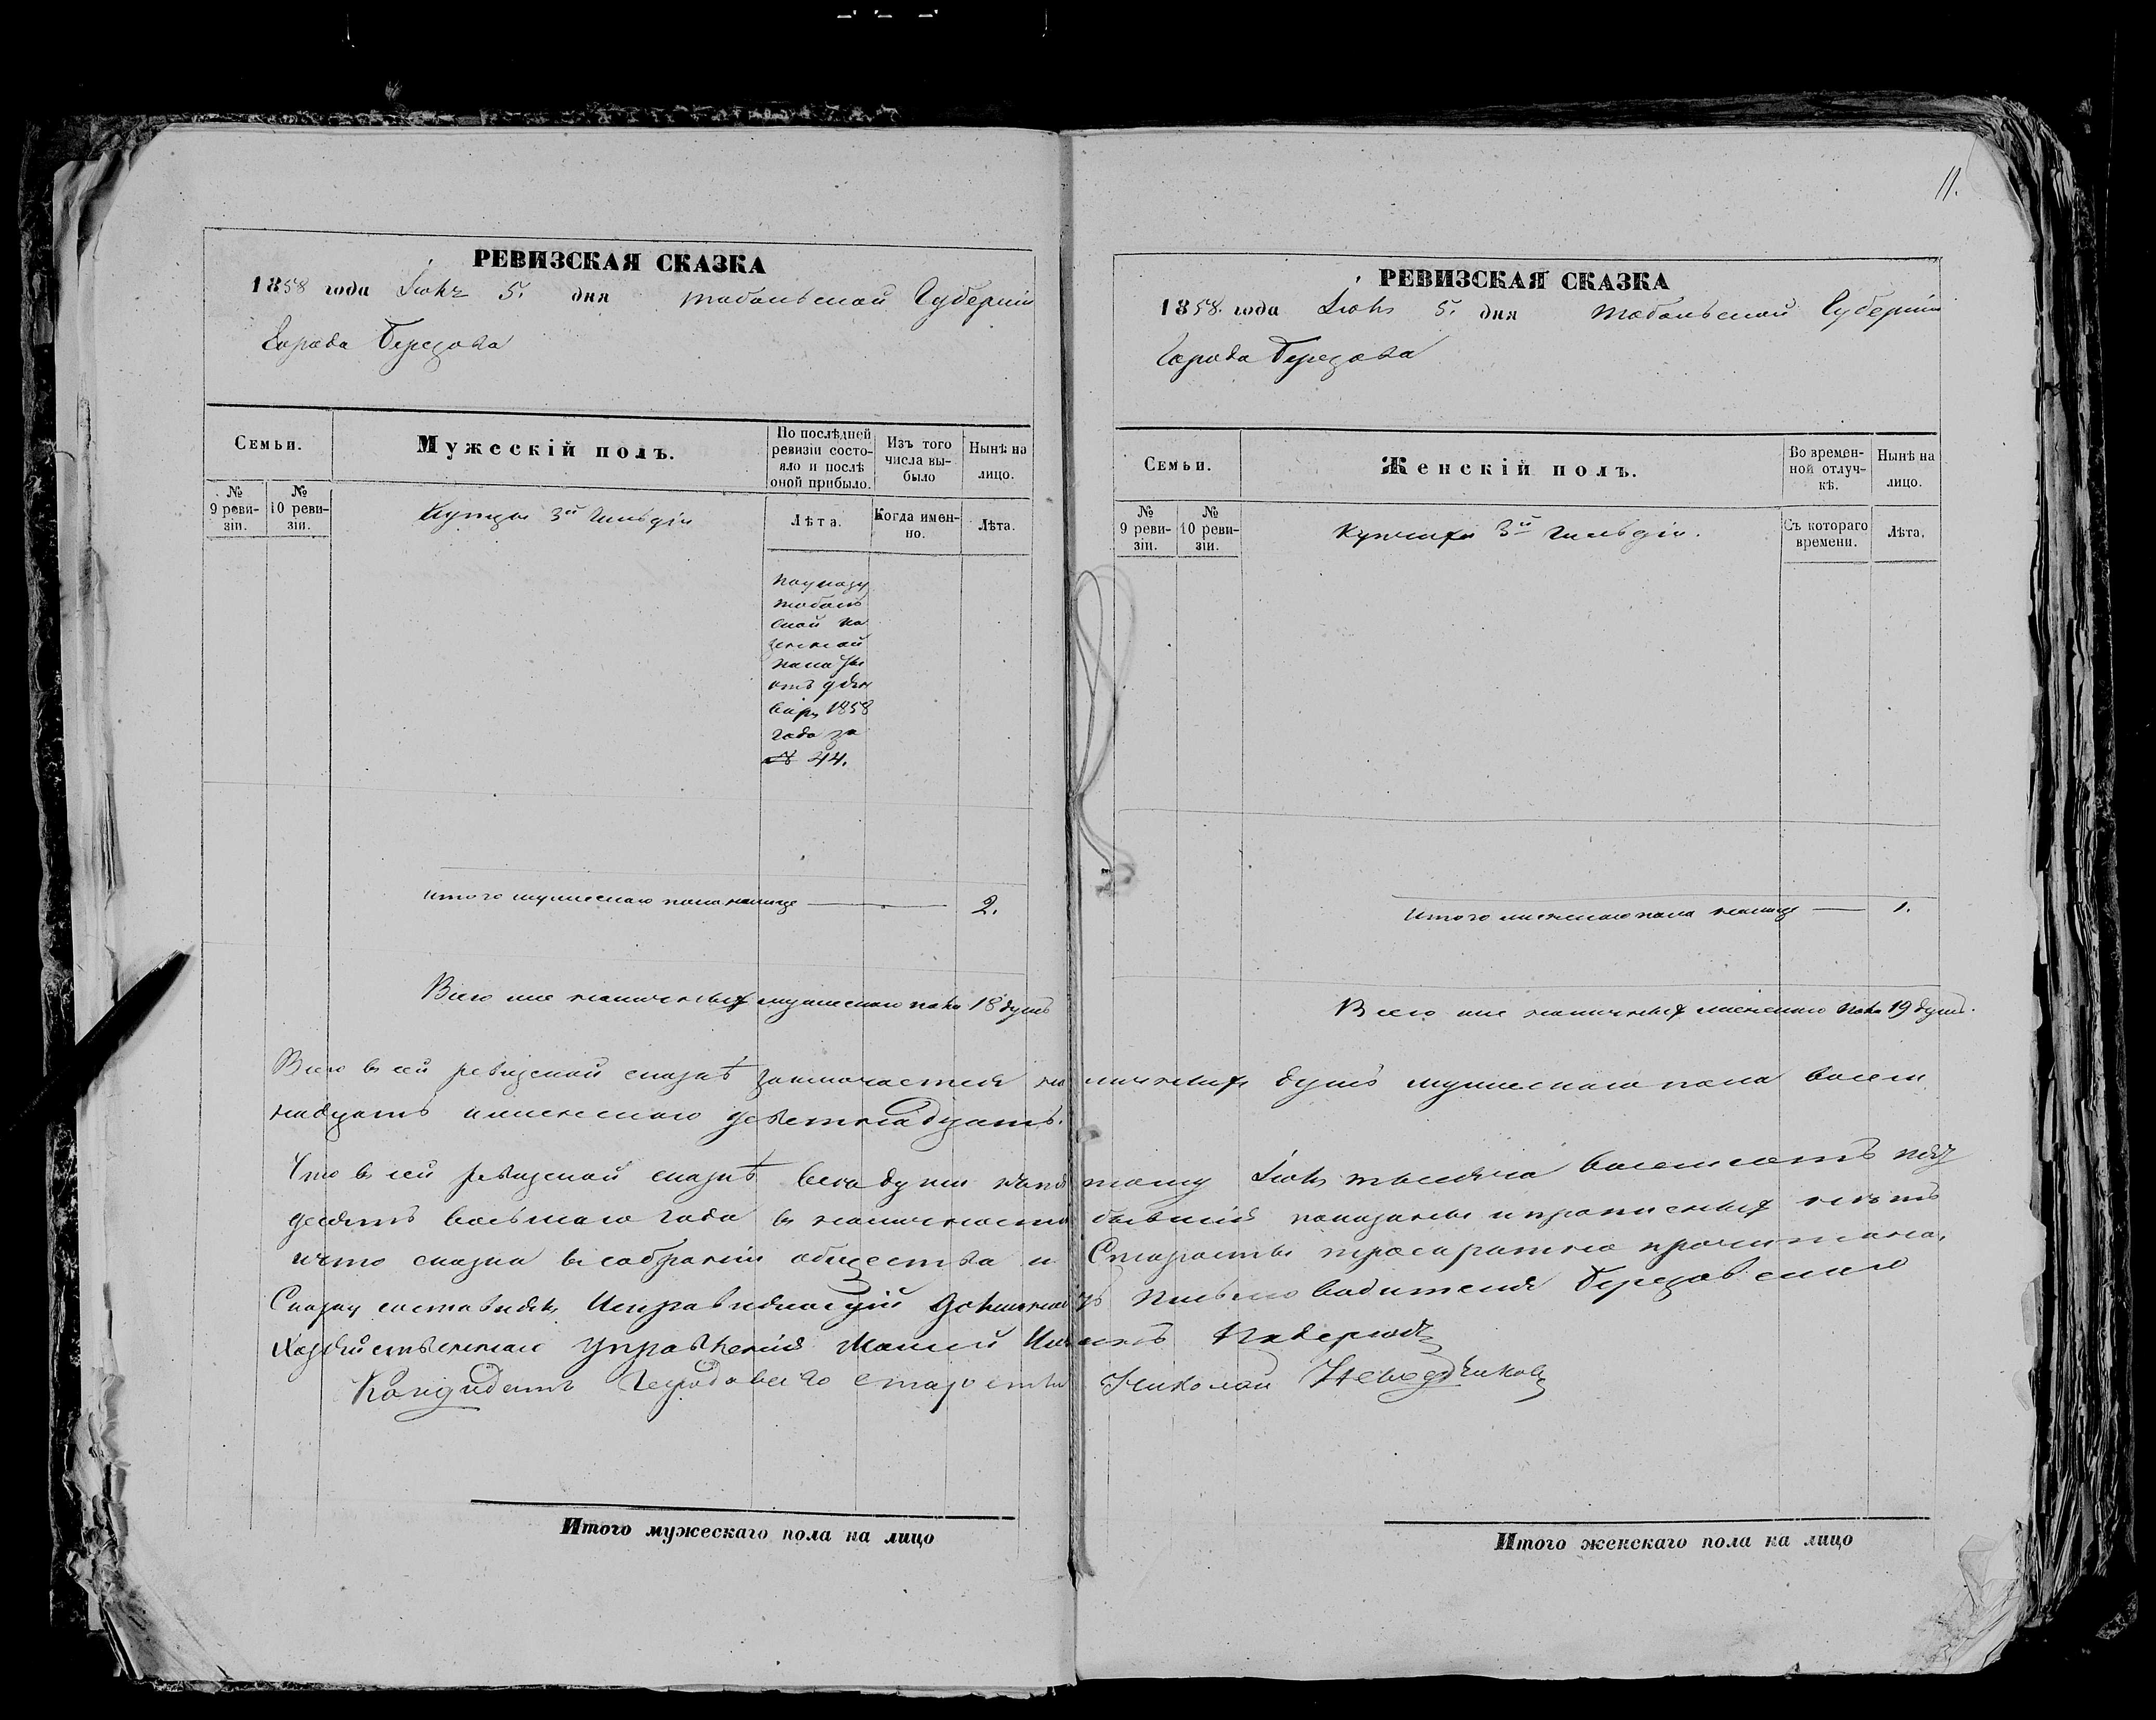 РЕВИЗСКАЯ СКАЗКА
1858 года Іюня 5. дня Тобольской Губерніи
Города Березова
Семьи.
Мужескій полъ.
По послѣдней ревизіи состояло и послѣ оной прибыло.
Изъ того числа выбыло
Нынѣ на лицо.
№ 9 ревизіи.
№ 10 ревизіи.
Купцы 3й Гильдіи
Лѣта.
Когда именно.
Лѣта.
по указу
Тобол
ской Ка
зенной
Палаты
отъ 9 Ген
варя 1858
года за
№ 44.
Итого мужескаго пола налице 2.
Всего же наличныхъ мужескаго пола 18 душъ
11.
РЕВИЗСКАЯ СКАЗКА
1858. года Іюня 5. дня Тобольской Губерніи
Города Березова
Семьи.
Женскій полъ.
Во временной отлучкѣ.
Нынѣ на лицо.
№ 9 ревизіи.
№ 10 ревизіи.
Купчихи 3й Гильдіи.
Съ котораго времени.
Лѣта.
Итого женскаго пола налице 1.
Всего же наличныхъ женскаго пола 19 душъ.
Всего в сей ревизской сказкѣ заключается наличныхъ душъ мужескаго пола восем
надцать и женскаго деветнадцать.
Что в сей ревизской сказкѣ всѣ души Іюня восемсотъ пять
десятъ восьмаго года в наличности бывшія показаны и прописныхъ нетъ
и что сказка в собраніи общества и Старосты троекратно прочитана.
Сказку составлялъ Исправляющій Должность Письмоводителя Березовскаго
Хозяйственнаго Управленія
Кандидатъ Городоваго Старосты Николай
Итого мужескаго пола на лицо
Итого женскаго пола на лицо